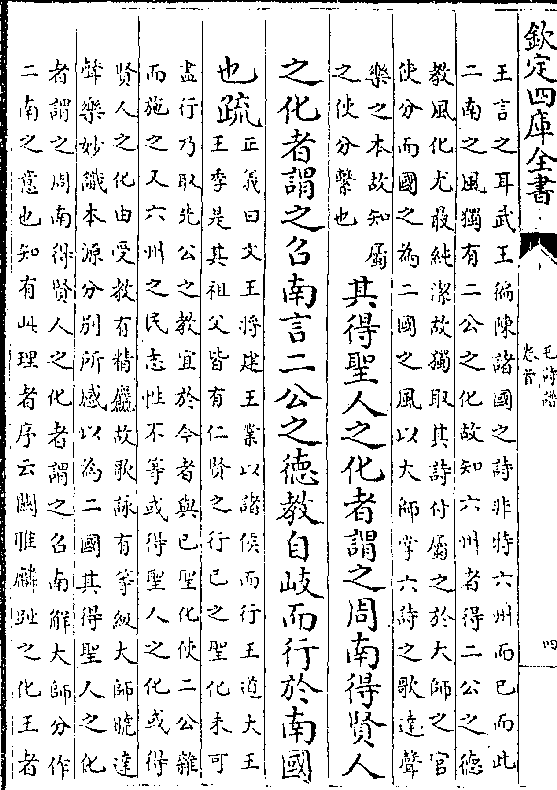 欽定四庫全書
毛詩譜
卷首
四
王言之耳武王徧陳諸國之詩非特六州而已而此
二南之風獨有二公之化故知六州者得二公之德
教風化尤最純潔故獨取其詩付屬之於大師之官
使分而國之為二國之風以大師掌六詩之歌達聲
樂之本故知屬
之使分繫也
其得聖人之化者謂之周南得賢人
之化者謂之召南言二公之德教自岐而行於南國
也疏
正義曰文王將建王業以諸侯而行王道大王
王季是其祖父皆有仁賢之行已之聖化未可
盡行乃取先公之教宜於今者與已聖化使二公雜
而施之又六州之民志性不等或得聖人之化或得
賢人之化由受教有精麤故歌詠有等級大師曉達
聲樂妙識本源分别所感以為二國其得聖人之化
者謂之周南得賢人之化者謂之召南解大師分作
二南之意也知有此理者序云關雎麟趾之化王者